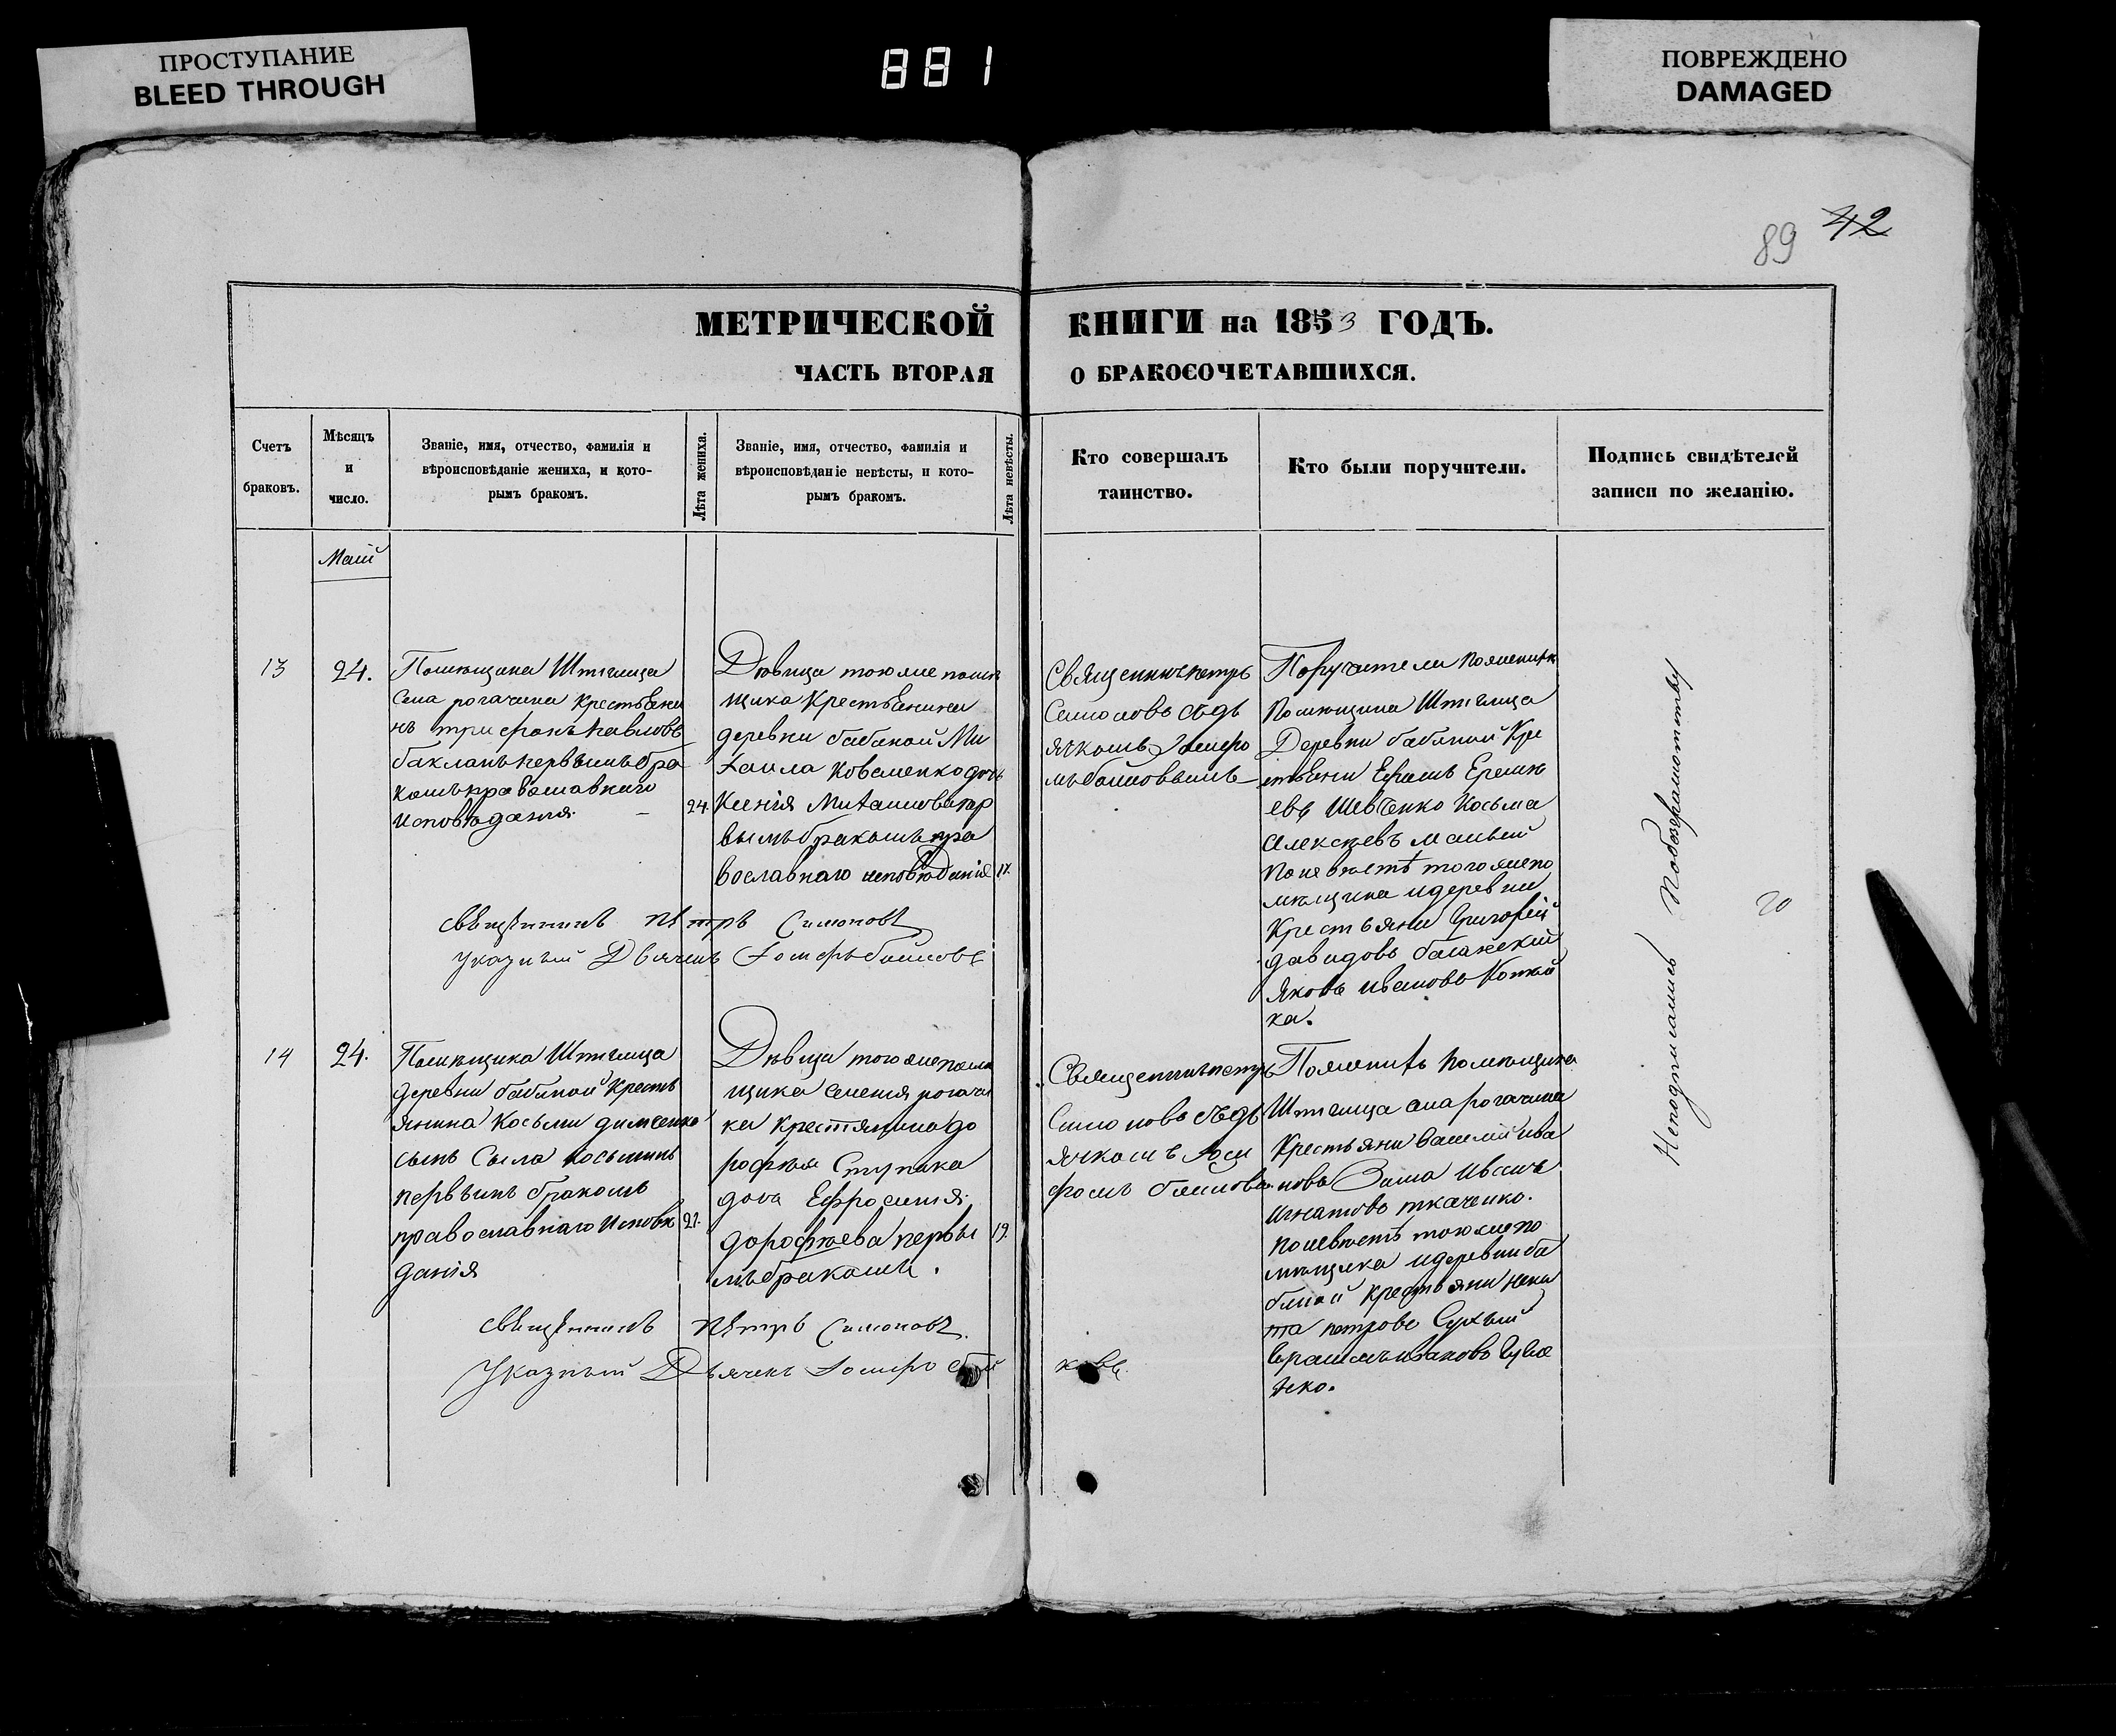 ПРОСТУПАНИЕ
BLEED THROUGH
881
ПОВРЕЖДЕНО
DAMAGED
89 42
МЕТРИЧЕСКОЙ КНИГИ на 1853 ГОДЪ.
ЧАСТЬ ВТОРАЯ О БРАКОСОЧЕТАВШИХСЯ.
Счетъ
браковъ.
Мѣсяцъ
и
число.
Званіе, имя, отчество, фамилія и
вѣроисповѣданіе жениха, и кото-
рымъ бракомъ.
Лѣта жениха.
Званіе, имя, отчество, фамилія и
вѣроисповѣданіе невѣсты, и кото-
рымъ бракомъ.
Лѣта невѣсты.
Кто совершалъ
таинство.
Кто были поручители.
Подпись свидѣтелей
записи по желанію.
Маій
13
24.
Помѣщика Штиглица
села рогачика
нъ трифонъ павловъ
бакланъ первымъ бра
комъ православнаго
исповѣданія
24.
Дѣвица того же помѣ
щика
деревни бабиной Ми
хаила Коваленко дочь
Ксенія Михаилова пер
вымъ бракомъ пра
вославнаго исповѣданія
17.
Священникъ петръ
Симоновъ съ дь
ячкомъ
Поручители по женихѣ
Помѣщика Штиглица
Деревни бабиной Кре
стьяни Ефимъ Еремѣ
евъ Шевченко Косьма
алексѣевъ малый
По невѣстѣ того же по
мѣщика и деревни
Крестьяни Григорій
давидовъ
Яковъ ивановъ
ка.
священникъ петръ Симоновъ
указный Дьячекъ
14
24.
Помѣщика Штиглица
деревни бабиной Кресть
янина Косьми
сынъ Сысла косьминъ
первымъ бракомъ
православнаго Исповѣ
данія
21.
Дѣвица того же помѣ
щика селенія рогачи
ка крестянина до
рофѣя Ступака
дочь Ефросинія
дорофѣева первы
мъ бракомъ.
19.
Священникъ петръ
Симоновъ съ дь
ячкомъ
По женихѣ помѣщика
Штиглица села рогачика
Крестьяни василій ива
новъ Иванъ
Игнатовъ ткаченко.
По невѣстѣ того же по
мѣщика и деревни ба
биной крестьяни ники
та петровъ Сухый
священникъ петръ Симоновъ.
Указный Дьячекъ
Неподписались Побезграмотству
20